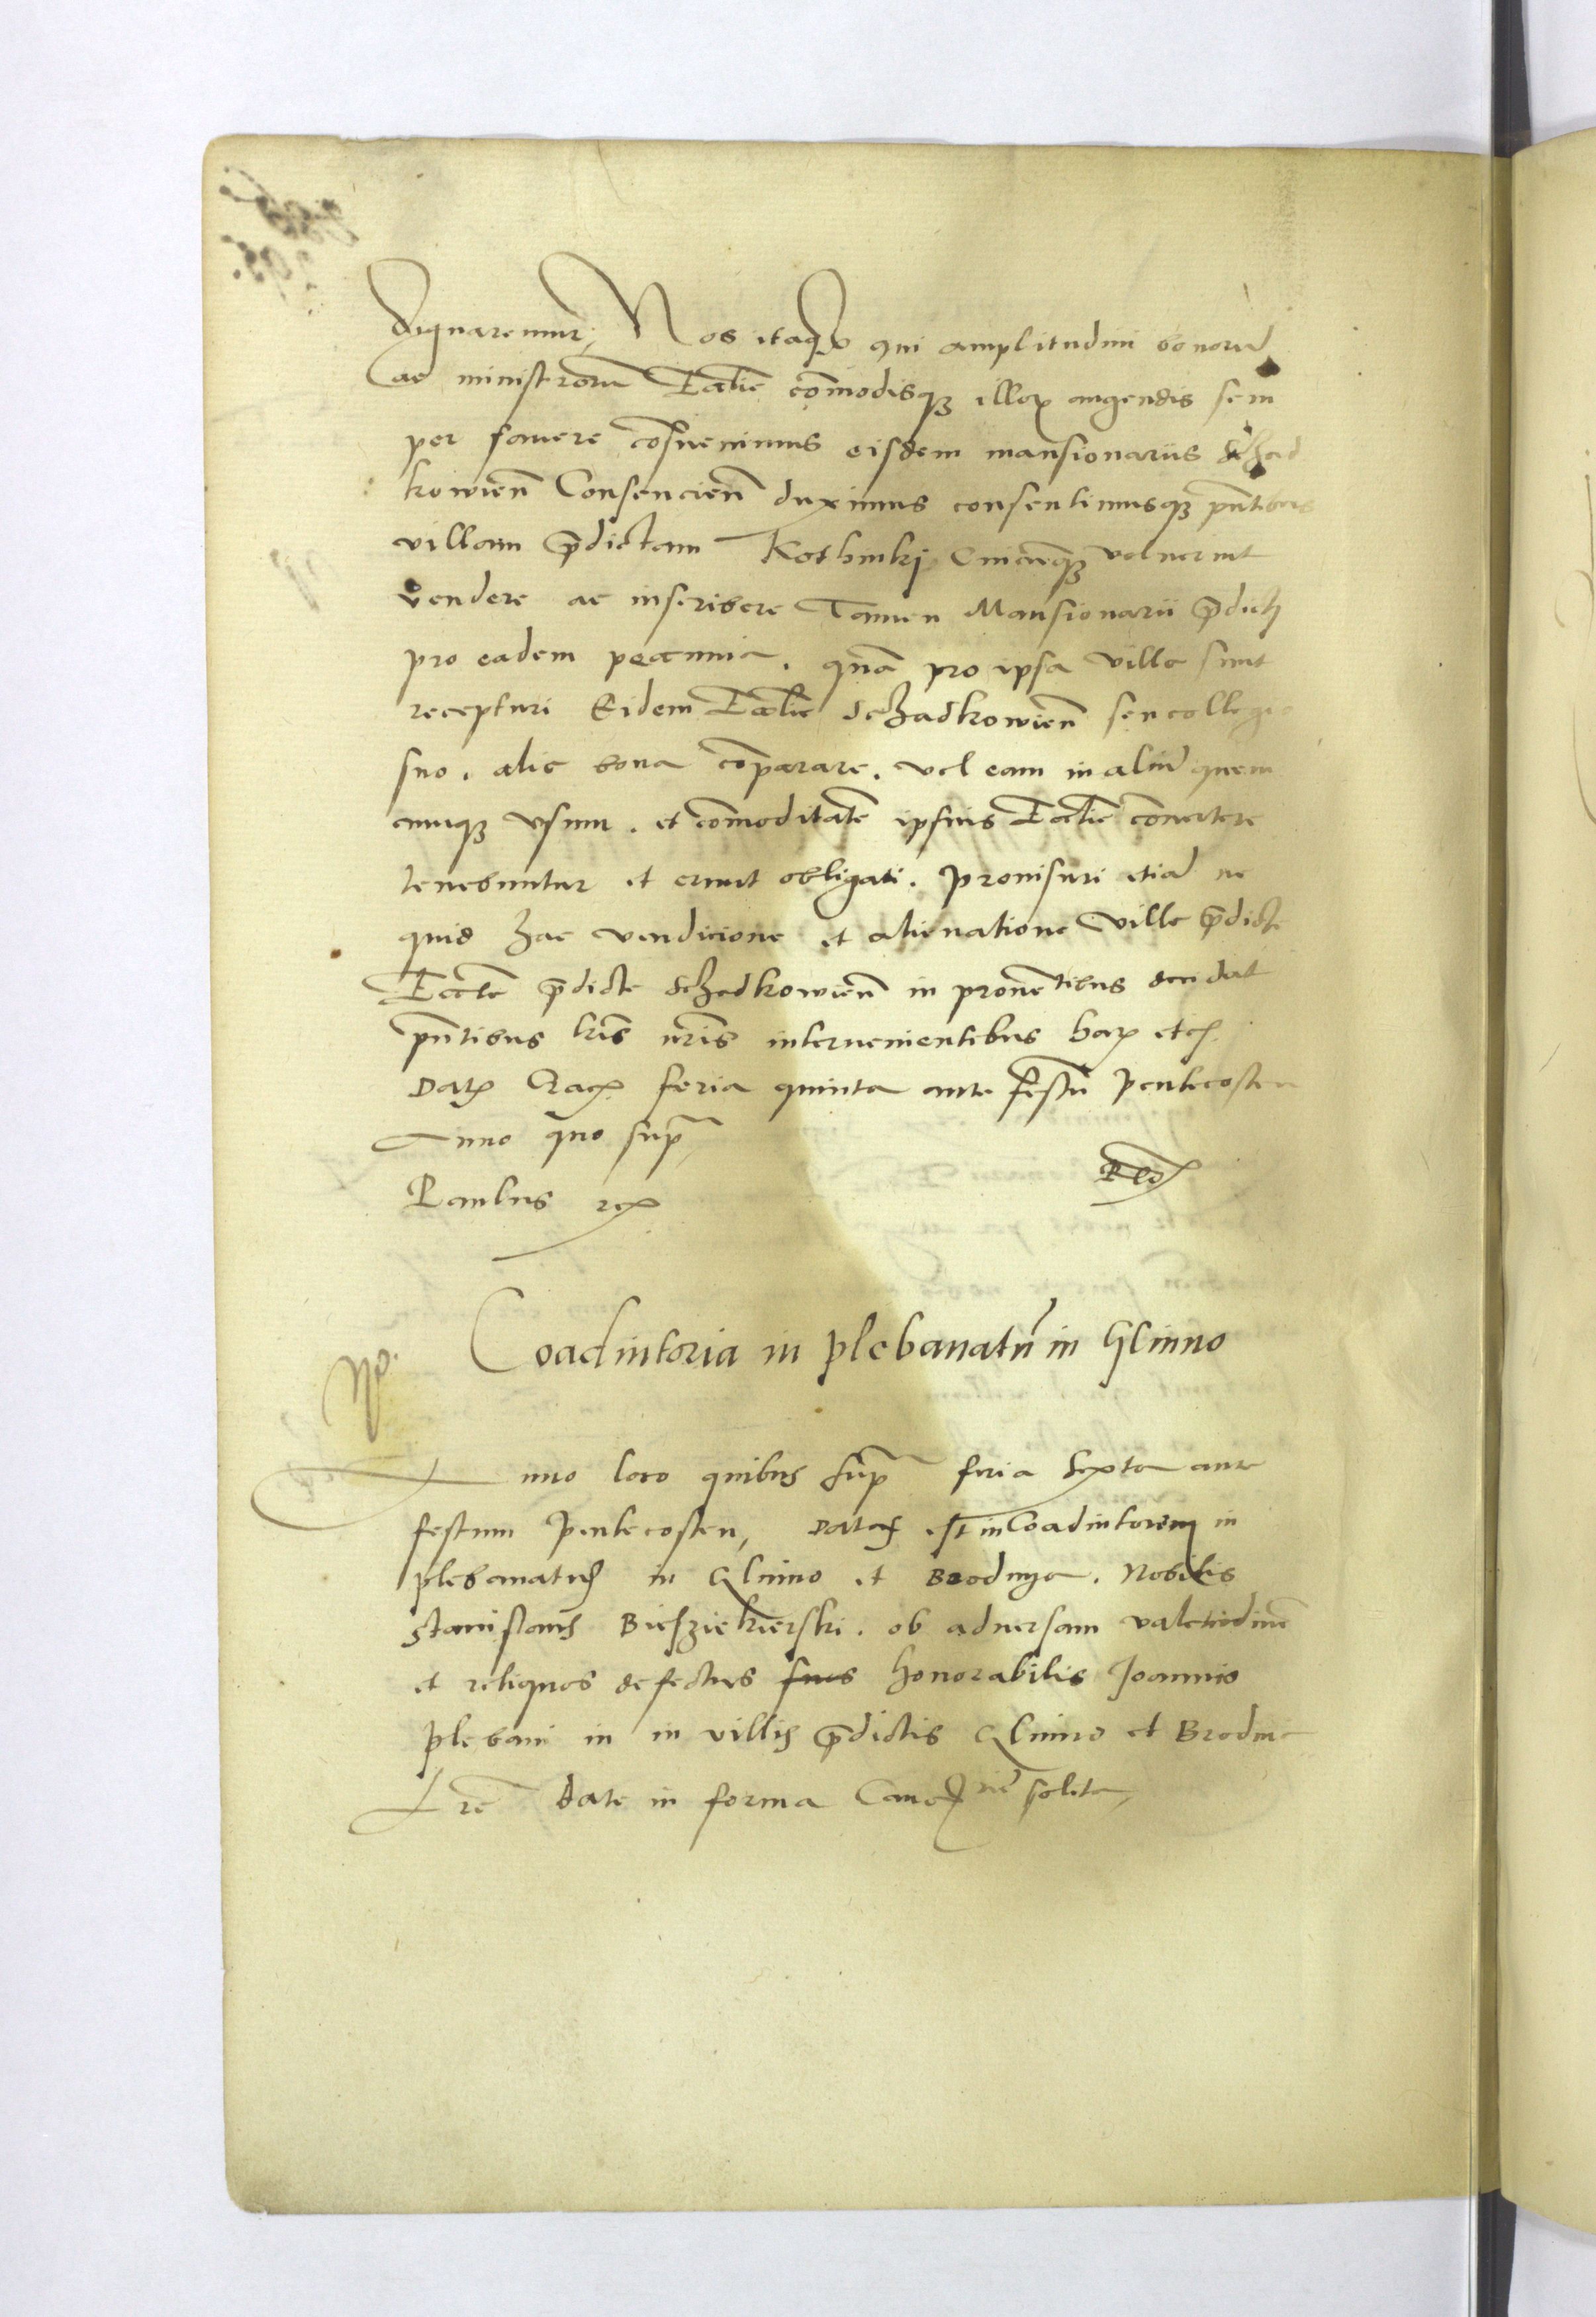 dignaremur, Nos itaq3 qui amplitudini bonorū
ac ministrorū Eccłie cōmodisq3 illoꝝ augendis sem
per fauere cōsueuimus eisdem mansionariis Schad
kowieñ Consencieñ duximus consentimusq3 pñtibus
villam p̄dictam Kothinkj Cuicūq3 voluerint
vendere ac inscribere Tamen Mansionarii p̄dicti
pro eadem pecunia. quā pro ipsa villa sunt
recepturi Eidem Eccłie Schadkowieñ seu collegio
suo. alia bona cōparare. vel eam in aliū quem
cunq3 vsum. et cōmoditatē ipsius Eccłie cōuertere
tenebuntur et erunt obligati. prouisuri etiā ne
quid hac vendicione et alienatione ville p̄dicte
Eccłie p̄dicte Schadkowieñ in prouētibus decedat
pñtibus łris nr̄is interuenientibus haꝝ etc
Datꝝ Cracꝝ feria quinta ante festū pentecosten
Anno quo sup̄
Paulus
Coadiutoria in plebanatū in Glinno
Anno loco quibus sup̄ feria sexta ante
festum pentecosten, datus est in Coadiutorem in
plebanatus in Glinno et Brodnya. Nobilis
Stanislaus Bieschziekierski. ob aduersam valetudinē
et reliquos defectus suos honorabilis Joannis
plebani in in villis p̄dictis Glinno et Brodnia
Lr̄e date in forma Canc solita,